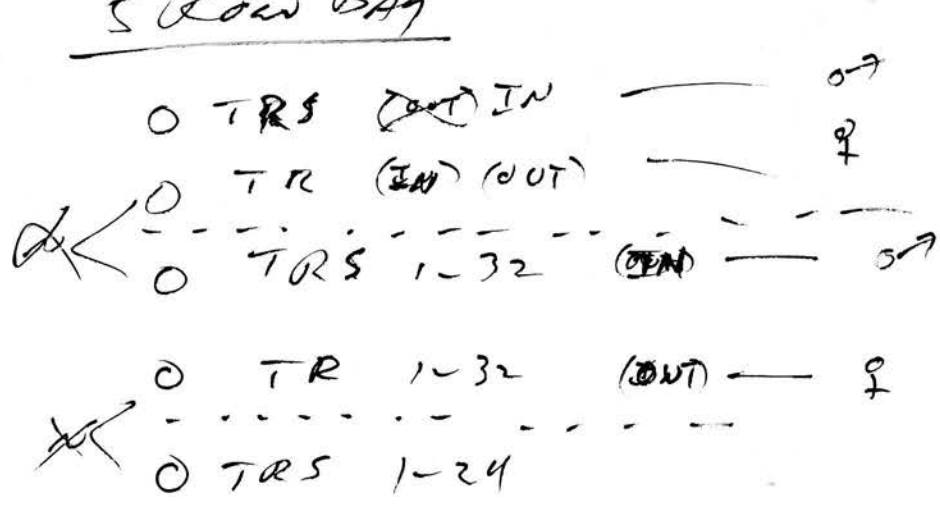 5 ROAD BAY
O TRS (OUT) IN — ♂
O TR (IN) (OUT) — ♀
O TRS 1-32 (IN) — ♂
O TR 1-32 (OUT) — ♀
O TRS 1-24